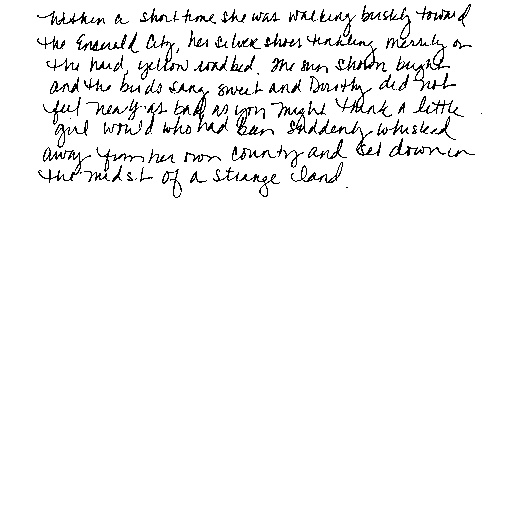 Within a short time she was walking briskly toward
the Emerald City, her silver shoes tinkling merrily on
the hard, yellow road bed. The sun shown bright
and the birds sang sweet and Dorothy did not
feel nearly as bad as you might think a little
girl would who had been suddenly whisked
away from her own country and set down in
the midst of a strange land.